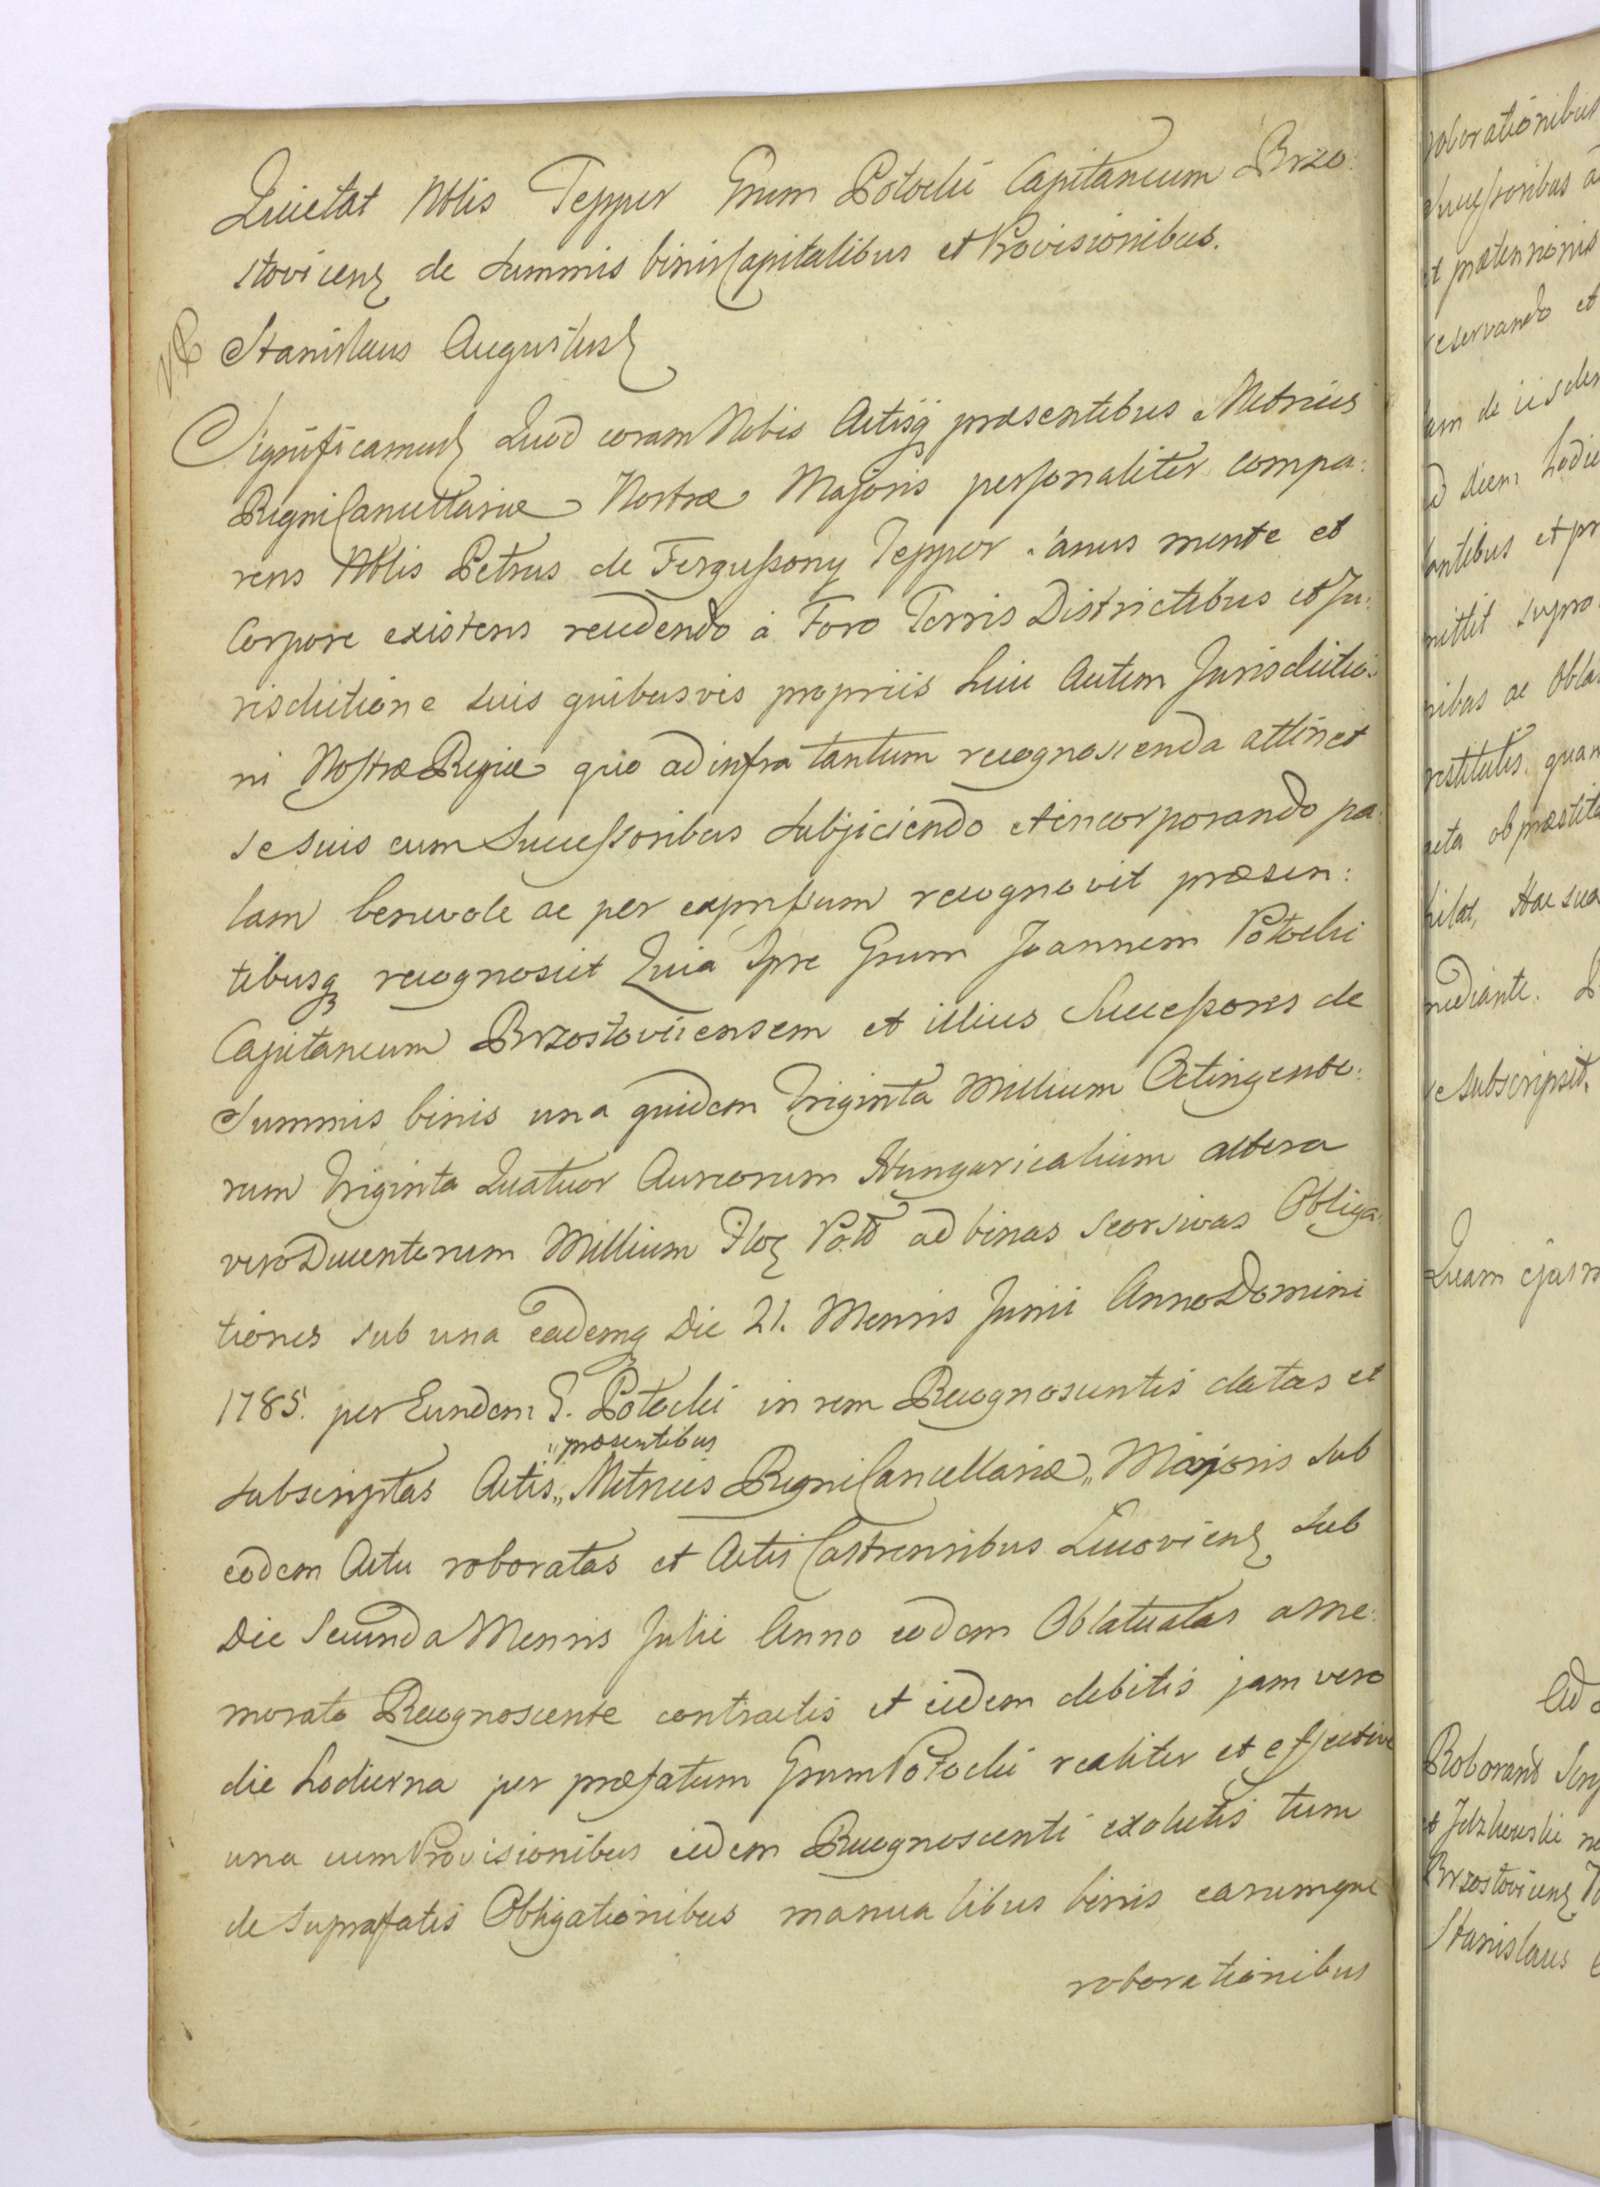 Quietat Nblis Tepper Grum Potocki Capitaneum Brzo:
stovicens de Summis binis Capitalibus et Provisionibus.
Stanislaus Augustus
Significamus Quod coram Nobis Actisq præsentibus Metrices
Regni Cancellariæ Nostræ Majoris personaliter compa:
rens Nblis Petrus de Fergussony Tepper sanus mente et
Corpore existens recedendo à Foro Terris Districtibus et Ju:
risdictione suis quibusvis propriis huic Autem Jurisdictio:
ni Nostræ Regiæ quo ad infra tantum recognoscenda attinet
se suis cum Successoribus subjiciendo et incorporando pa:
lam benevole ac per expressum recognovit præsen:
tibusq recognoscit Quia Ipse Grum Joannem Potocki
Capitaneum Brzostoviciensem et illius Successores de
Summis binis una quidem Triginta Millium Octingento:
rum Triginta Quatuor Aureorum Hungaricalium altera
vero Ducentorum Millium Flor Pold ad binas seorsivas Obliga:
tiones sub una eademq Die 21. Mensis Junii Anno Domini
1785. per Eundem G. Potocki in rem Recognoscentis datas et
præsentibus
subscriptas Actis,, Metrices Regni Cancellariæ,, Majoris sub
eodem Actu roboratas et Actis Castrensibus Lucoviens sub
Die Secunda Mensis Julii Anno eodem Oblatuatas a me:
morato Recognoscente contractis et eidem debitis jam vero
die hodierna per præfatum Grum Potocki realiter et effective
una cum Provisionibus eidem Recognoscenti exolutis tum
de suprafatis Obligationibus manualibus binis earumque
roborationibus
roborationibus
Successoribus
et prætensionis
reservando et
hodie
restitutis, quam
mediante.
se subscripsit.
Quam
Ad
Roborand
Brzostovicens
Stanislaus